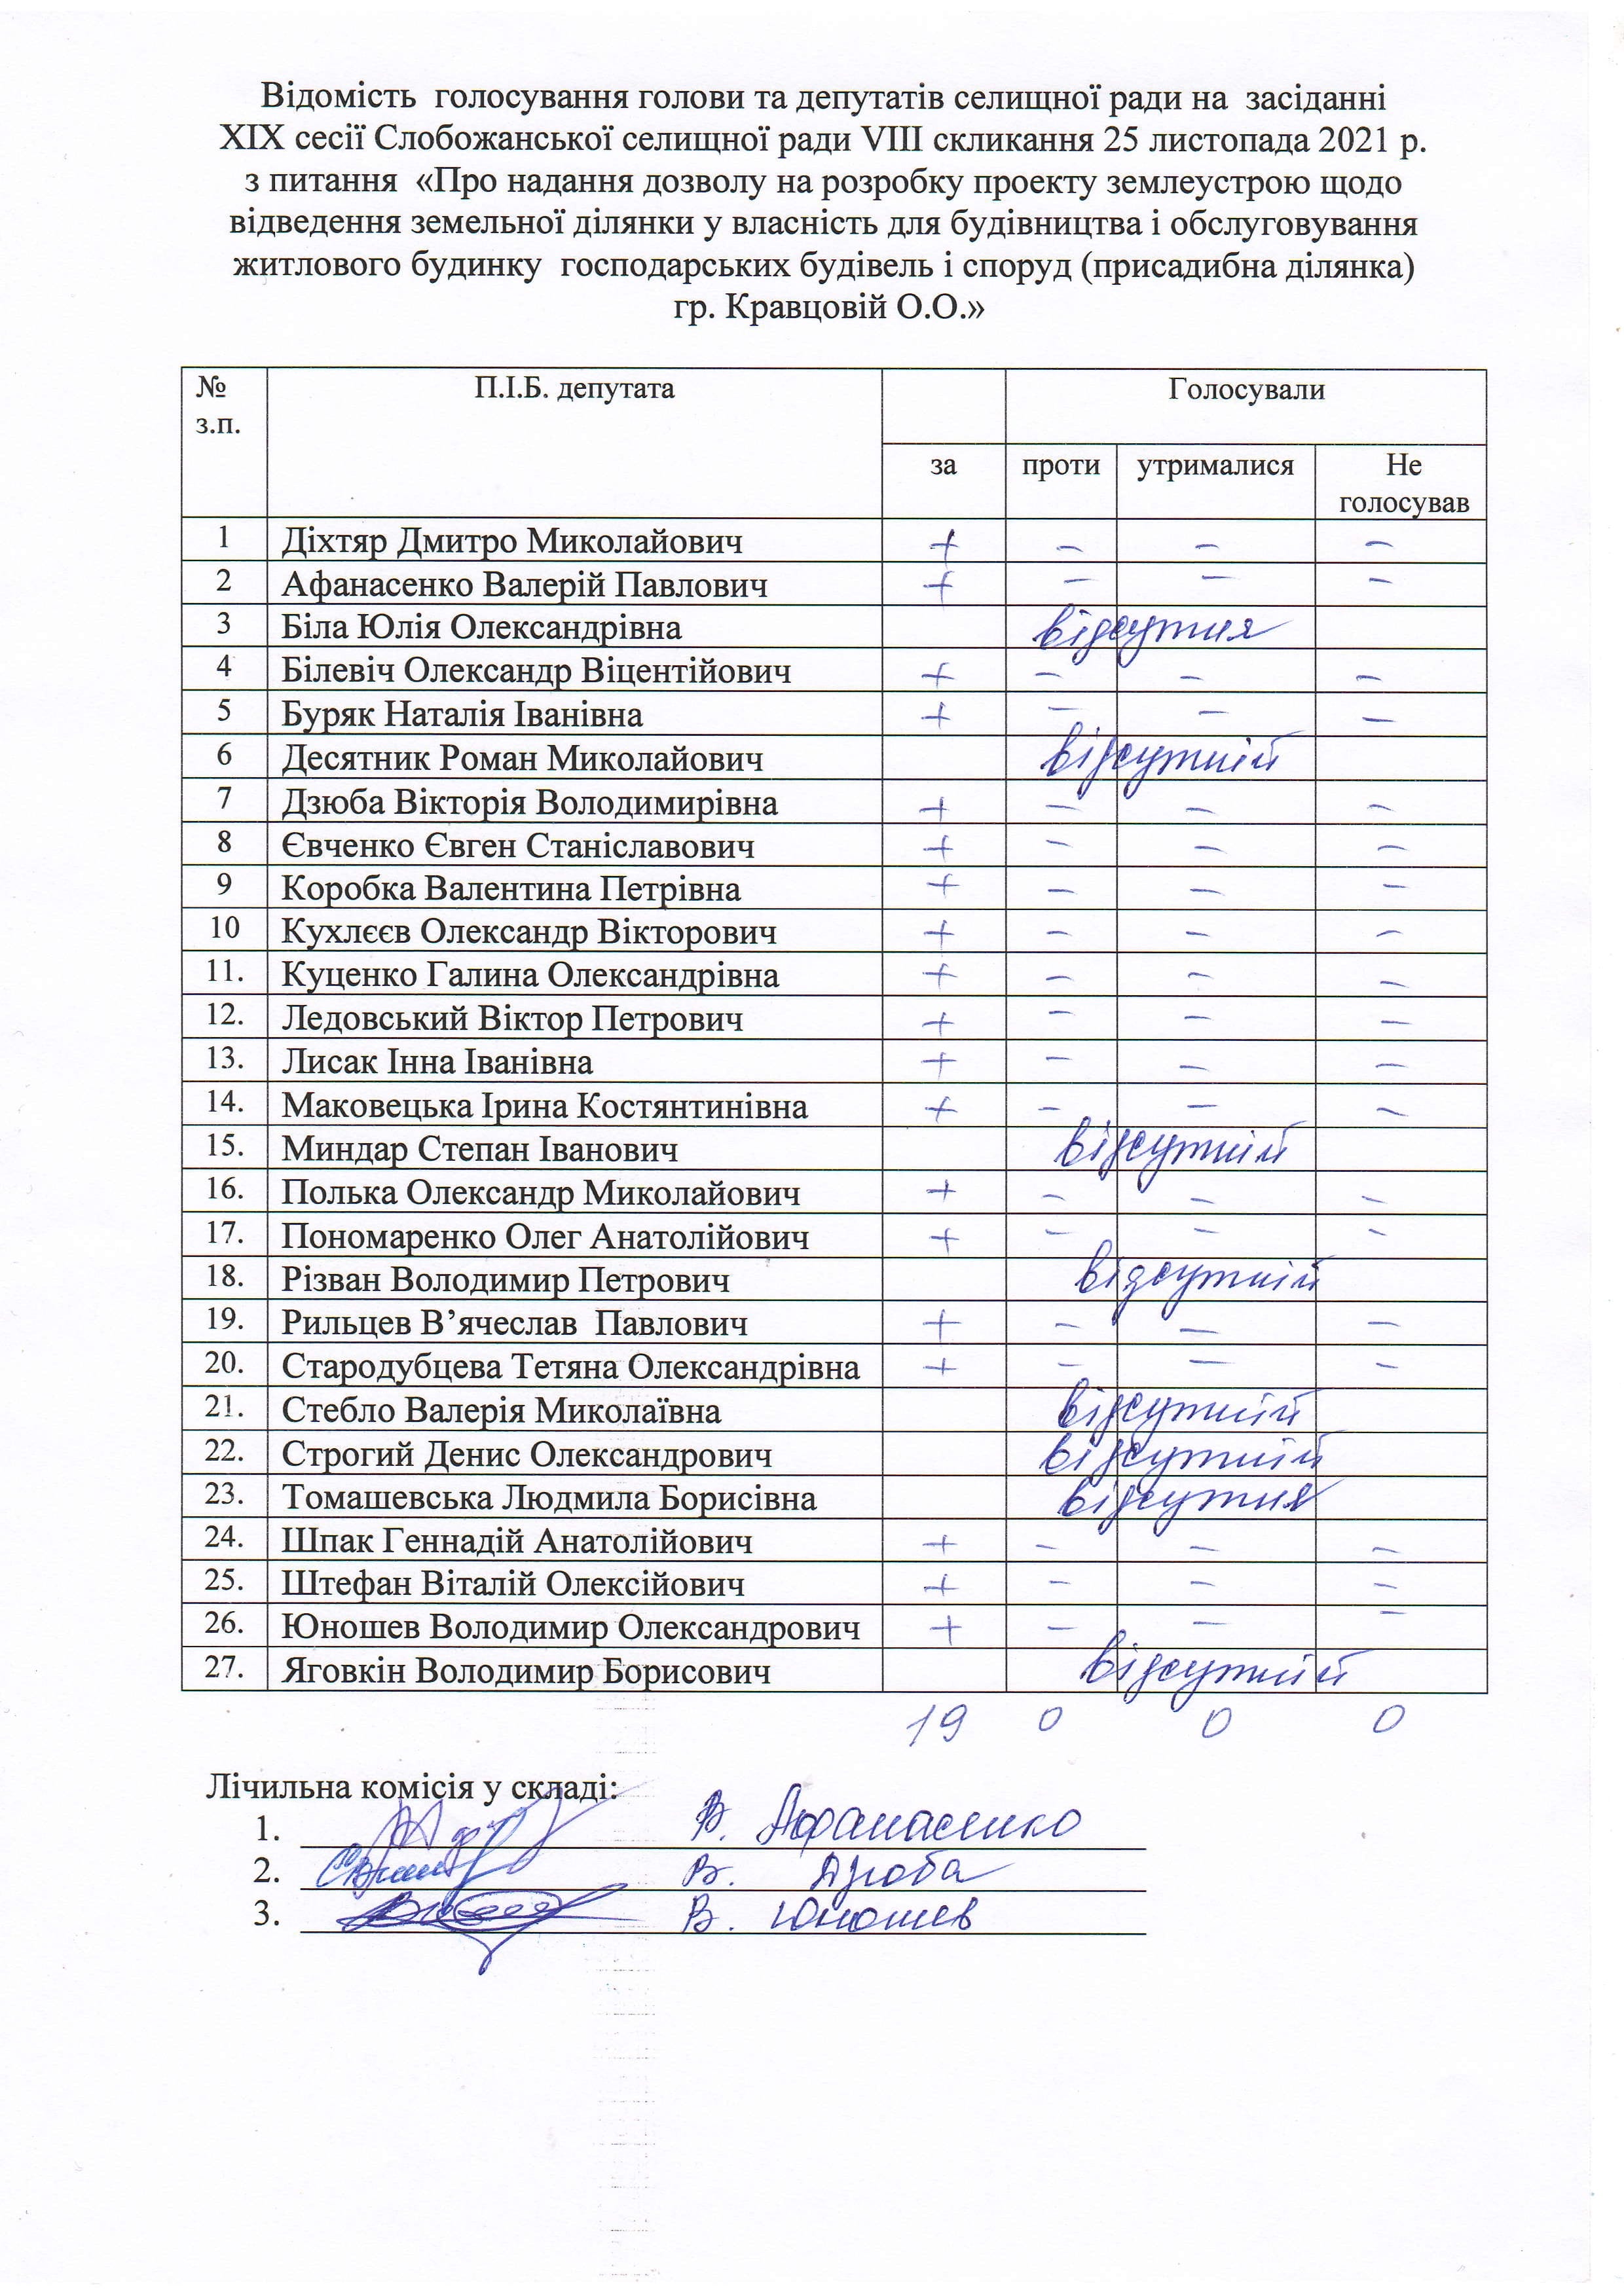 Відомість голосування голови та депутатів селищної ради на засіданні
XIX сесії Слобожанської селищної ради VIII скликання 25 листопада 2021 р.
з питання «Про надання дозволу на розробку проекту землеустрою щодо
відведення земельної ділянки у власність для будівництва і обслуговування
житлового будинку господарських будівель і споруд (присадибна ділянка)
гр. Кравцовій О.О.»
№ з.п. П.І.Б. депутата Голосували
за проти утрималися Не голосував
1 Діхтяр Дмитро Миколайович + – – –
2 Афанасенко Валерій Павлович + – – –
3 Біла Юлія Олександрівна відсутня
4 Білевіч Олександр Віцентійович + – – –
5 Буряк Наталія Іванівна + – – –
6 Десятник Роман Миколайович відсутній
7 Дзюба Вікторія Володимирівна + – – –
8 Євченко Євген Станіславович + – – –
9 Коробка Валентина Петрівна + – – –
10 Кухлєєв Олександр Вікторович + – – –
11. Куценко Галина Олександрівна + – – –
12. Ледовський Віктор Петрович + – – –
13. Лисак Інна Іванівна + – – –
14. Маковецька Ірина Костянтинівна + – – –
15. Миндар Степан Іванович відсутній
16. Полька Олександр Миколайович + – – –
17. Пономаренко Олег Анатолійович + – – –
18. Різван Володимир Петрович відсутній
19. Рильцев В’ячеслав Павлович + – – –
20. Стародубцева Тетяна Олександрівна + – – –
21. Стебло Валерія Миколаївна відсутній
22. Строгий Денис Олександрович відсутній
23. Томашевська Людмила Борисівна відсутня
24. Шпак Геннадій Анатолійович + – – –
25. Штефан Віталій Олексійович + – – –
26. Юношев Володимир Олександрович + – – –
27. Яговкін Володимир Борисович відсутній
19 0 0 0
Лічильна комісія у складі:
1. В. Афанасенко
2. В. Дзюба
3. В. Юношев